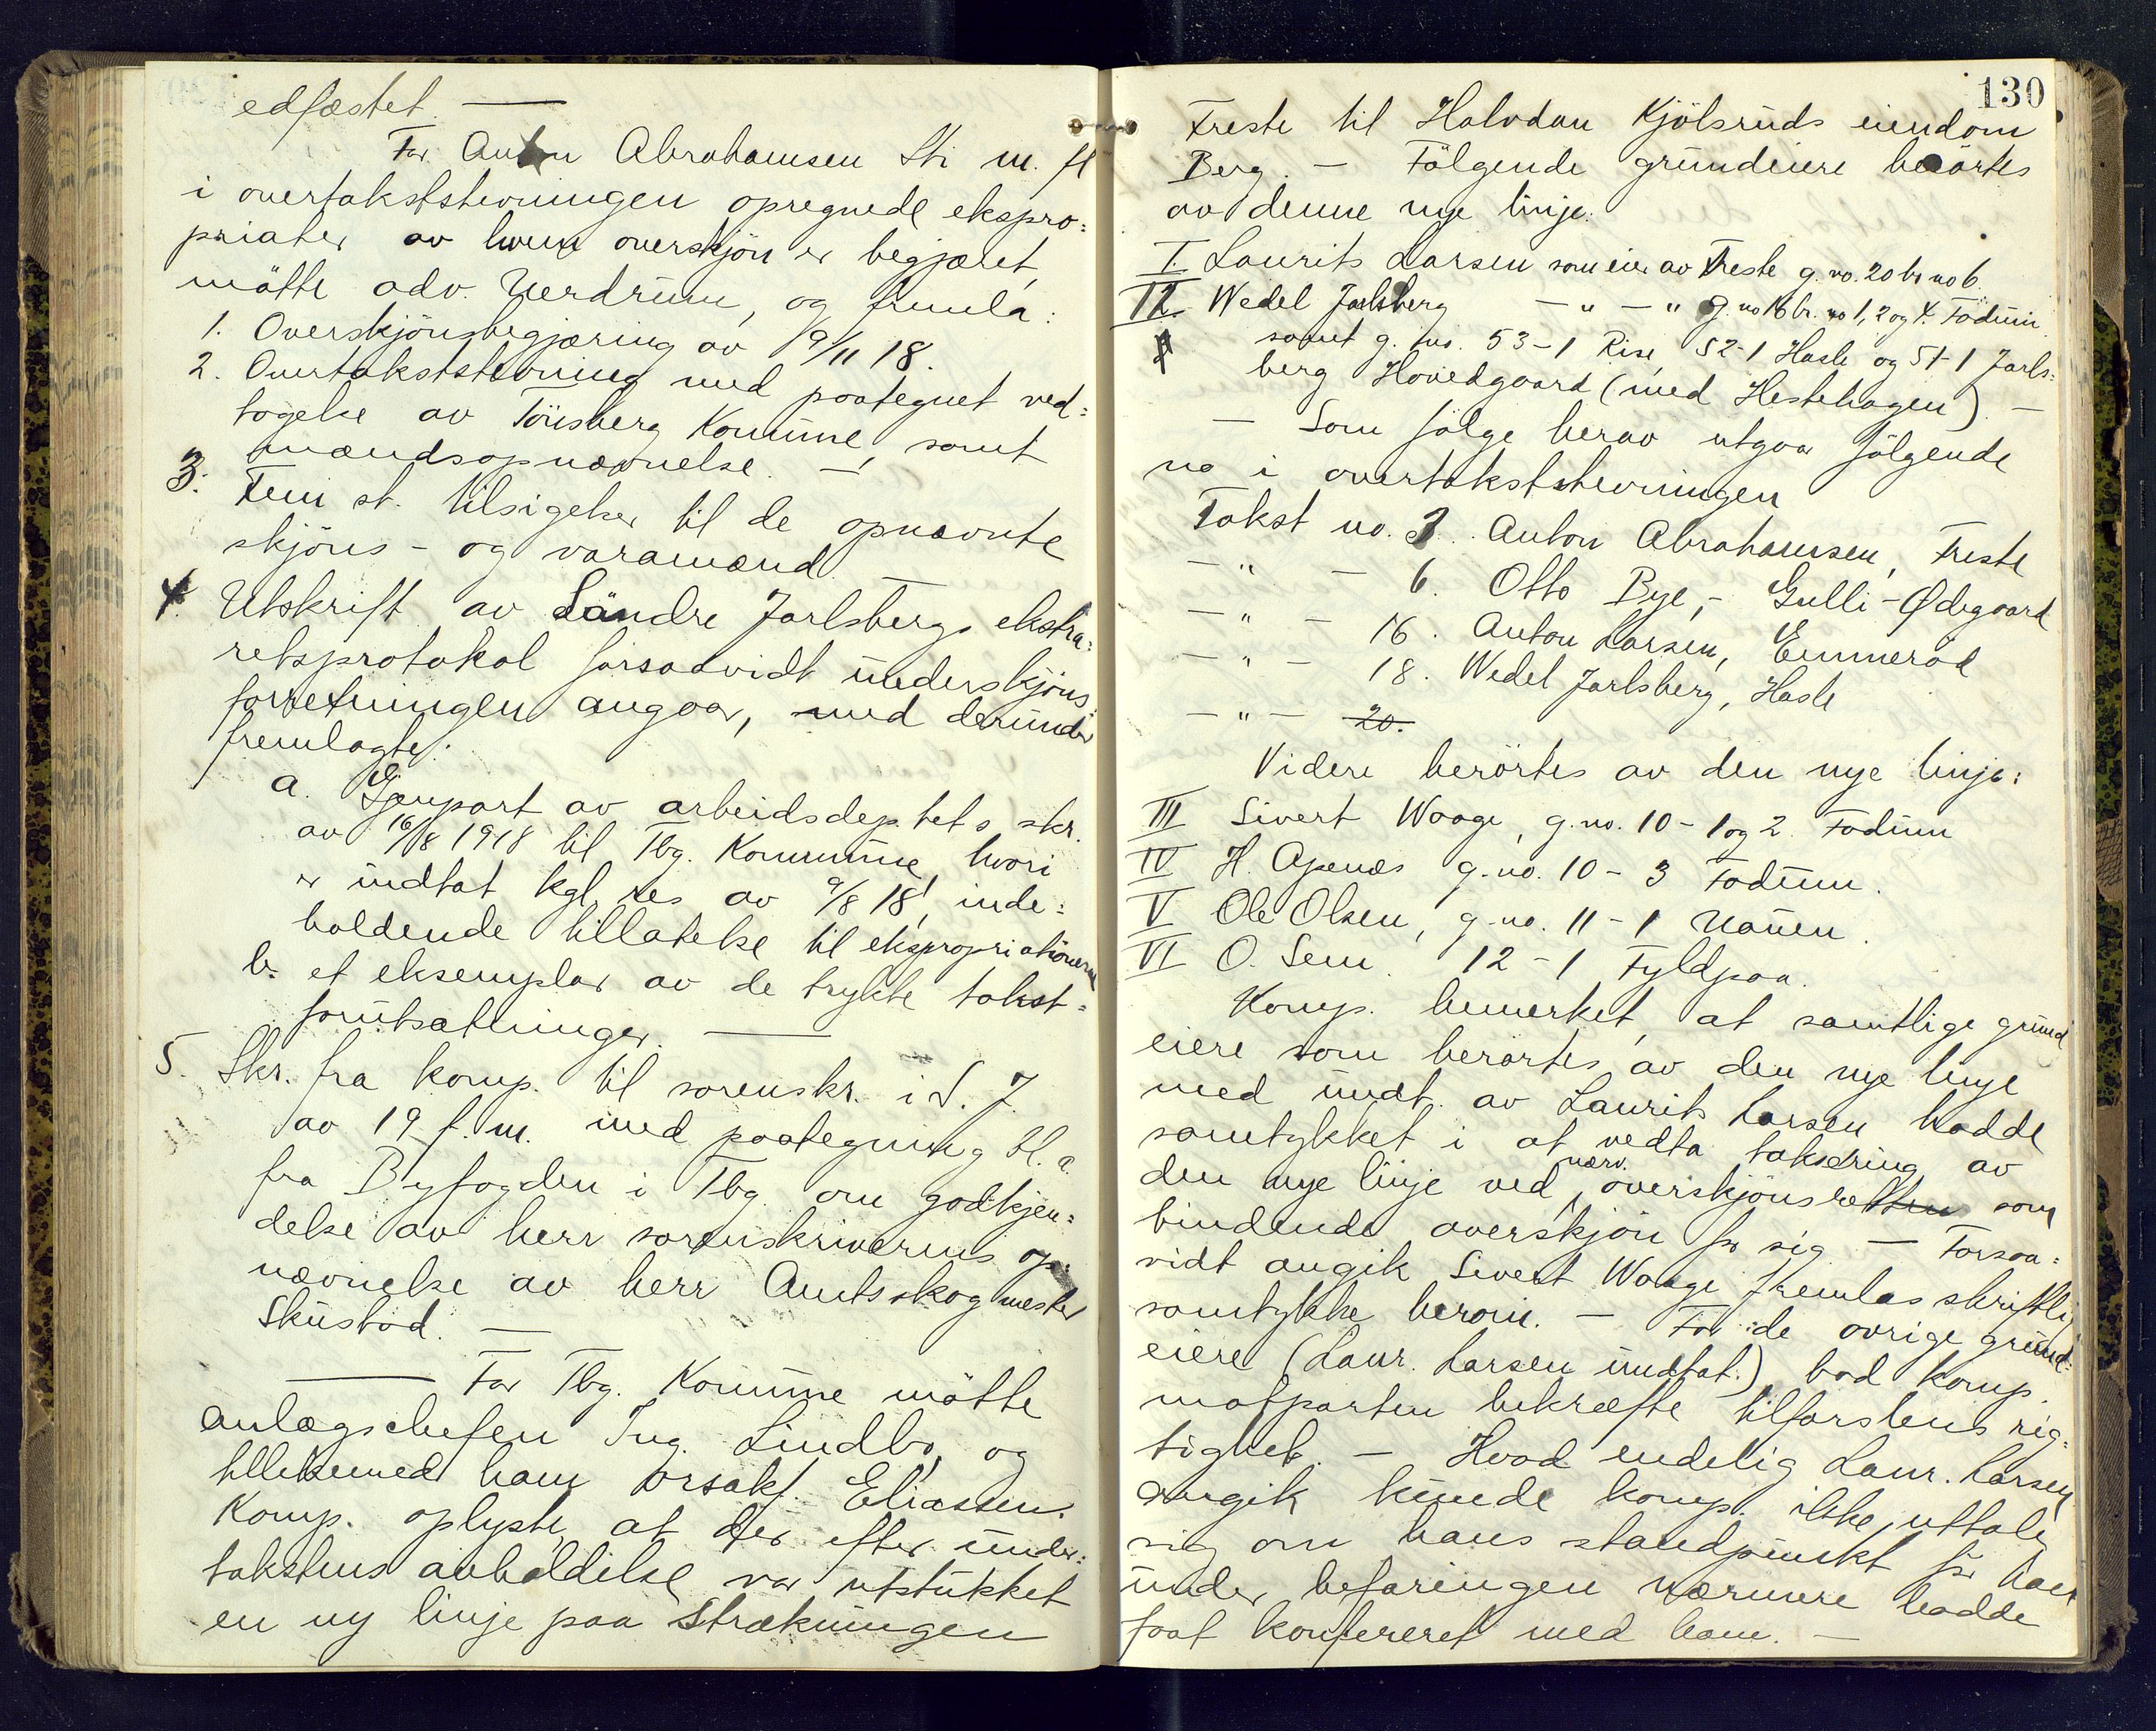 edfæstet. —
For Anton Abrahamsen Sti m. fl
i overtakststevningen opregnede ekspro=
priater av hvem overskjön er begjæret,
mötte adv. Uerdrum, og fremla:
1. Overskjönsbegjæring av 19/11 18.
2. Overtakststevning med paategnet ved=
tagelse av Tönsberg Kommune, samt
mændsopnævnelse. —
3. Fem st. tilsigelser til de opnævnte
skjöns- og varamænd. —
4. Utskrift av Söndre Jarlsbergs ekstra=
retsprotokol forsaavidt underskjöns=
forretningen angaar, med derunder
fremlagte:
a. Genpart av arbeidsdeptets skr.
av 16/8 1918 til Tbg. Kommune, hvori
er indtat kgl. res av 9/8 18, inde=
holdende tillatelse til ekspropriationen
b. et eksemplar av de trykte takst=
forutsætninger. —
5. Skr. fra komp. til sorenskr. i S. J.
av 19 f. m. med paategning bl. a.
fra Byfogden i Tbg. om godkjen=
delse av herr sorenskriverens op=
nævnelse av herr Amtsskogmester
Skustad. —
— For Tbg. Kommune mötte
anlægschefen Ing. Lindbo, og
tillikemed ham orsakf. Eliassen.
Komp. oplyste, at der efter under=
takstens avholdelse var utstukket
en ny linje paa strækningen
130
Freste til Halvdan Kjölsruds eiendom
Berg. — Fölgende grundeiere berörtes
av denne nye linje:
I. Laurits Larsen som eier av Freste g. no. 20 br no 6.
II. Wedel Jarlsberg — " — " g. no 16 br. no 1, 2 og 4. Fodum
samt g. no. 53-1 Rise, 52-1 Hasle og 51-1 Jarls=
berg Hovedgaard (med Hestehagen) —
— Som fölge herav utgaar fölgende
no i overtakststevningen
Takst no. 3. Anton Abrahamsen, Freste
— " — 6. Otto Bye, - Gulli-Ødegaard
— " — 16. Anton Larsen, Emmerød
— " — 18. Wedel Jarlsberg, Hasle
— " — 20.
Videre berörtes av den nye linje:
III Sivert Waage, g. no. 10 - 1 og 2. Fodum
IV H. Apenæs g. no. 10 - 3 Fodum.
V Ole Olsen, g. no. 11 - 1 Nauen.
VI O. Sem. 12 - 1 Fyldpaa.
Komp. bemerket, at samtlige grund
eiere som berörtes av den nye linje
med undt. av Laurits Larsen hadde
samtykket i at vedta taksering av
den nye linje ved nærv. overskjönsretten som
bindende overskjön for sig. — Forsaa=
vidt angik Sivert Waage fremlas skriftlig
samtykke herom. — For de övrige grund=
eiere (Laur. Larsen undtat.) bad komp.
motparten bekræfte tilförslens rig=
tighet. — Hvad endelig Laur. Larsen
angik kunde komp. ikke uttale
sig om hans standpunkt för han
under befaringen nærmere hadde
faat konfereret med ham. —